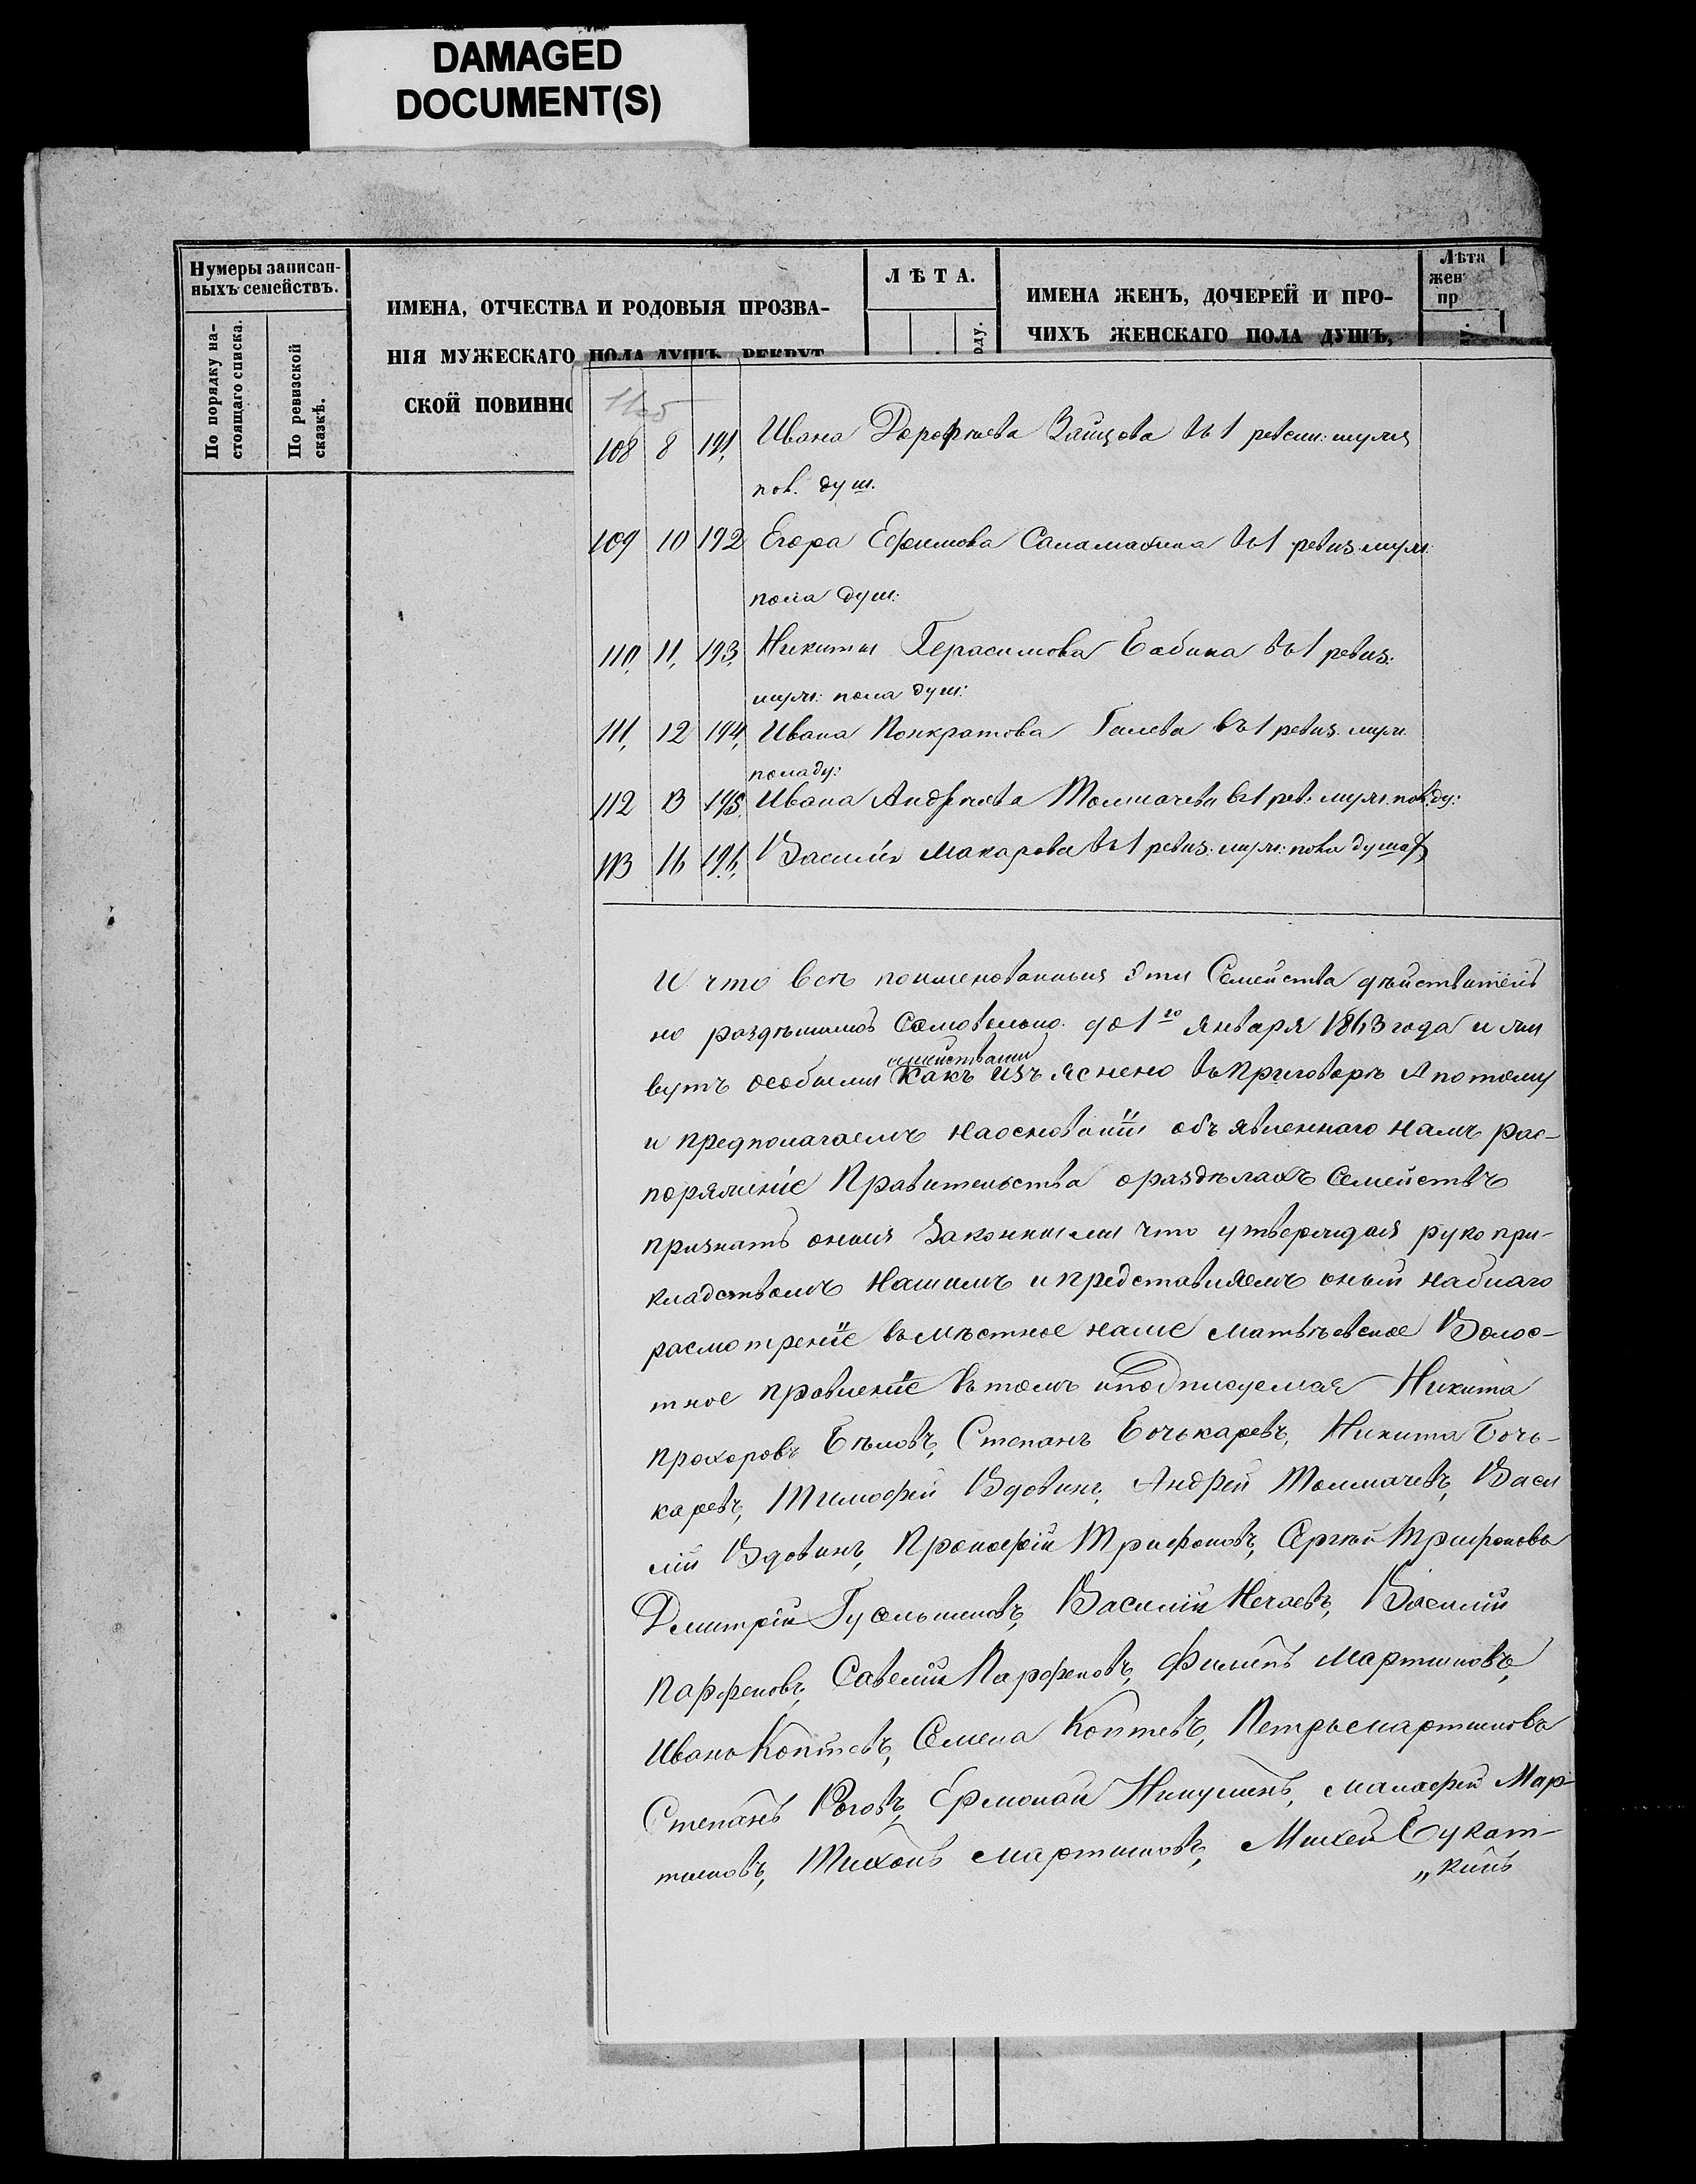 DAMAGED
DOCUMENT(S)
Нумеры записан-
ныхъ семействъ.
По порядку на-
стоящаго списка.
По ревизской
сказкѣ.
ИМЕНА, ОТЧЕСТВА И РОДОВЫЯ ПРОЗВА-
НІЯ МУЖЕСКАГО ПОЛА ДУШЪ, РЕКРУТ
СКОЙ ПОВИННО
ЛѢТА.
оду.
ИМЕНА ЖЕНЪ, ДОЧЕРЕЙ И ПРО-
ЧИХЪ ЖЕНСКАГО ПОЛА ДУШЪ,
Лѣта
жен
пр
108 8 191, Ивана Дорофѣева Зайцова въ 1 ревиз: мужя
пол. душ.
109 10 192 Егора Ефимова Саламахина въ 1 ревиз. муж:
пола душ:
110, 11, 193, Никиты Герасимова Бабина въ 1 ревиз:
муж: пола душ:
111, 12 194, Ивана Понкратова Галева въ 1 ревиз. муж.
пола ду:
112 13 195. Ивана Андреева Толмачева въ 1 рев: муж. пол: ду:
113 16 196, Василія Макарова въ 1 ревиз: муж: пола душах
И что всѣ поименованныя эти Семейства дѣйствитель
но раздѣлились Самовольно до 1го Января 1863 года и жи
семействами
вутъ особыми какъ изъяснено въ приговорѣ А потому
и предполагаемъ на основаніи объявленнаго намъ рас-
поряженіе Правительства о раздѣлахъ Семействъ
признать оныя Законными что утверждая рукопри-
кладствомъ Нашимъ и представляемъ оный на благо
расмотреніе въ мѣстное наше Матвѣевское Волос-
тное правленіе въ томъ и подписуемся Никита
Прохоровъ Бѣловъ, Степанъ Бочькаревъ, Никита Бочь-
каревъ, Тимофей Вдовинъ, Андрей Толмачевъ, Васи
лій Вдовинъ, Прокофій Трифоновъ, Сергѣй Трифоновъ
Дмитрій Гусельниковъ, Василій Нечаевъ, Василій
Парфеновъ, Савелій Парфеновъ, Филипъ Мартиновъ,
Иванъ Коптевъ, Семенъ Коптевъ, Петръ Мартиновъ
Степанъ Роговъ, Ермолай Никулинъ, Малафей Мар-
тиновъ, Тихонъ Мартиновъ, Михей Букат-
„кинъ